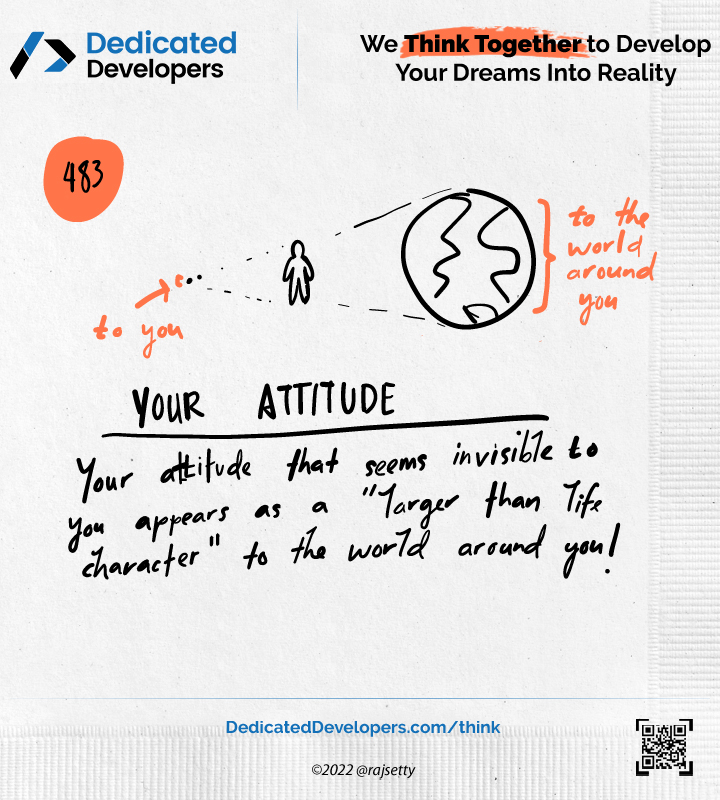 Dedicated
Developers
We Think Together to Develop
Your Dreams Into Reality
483
to the
world
around
you
to you
YOUR ATTITUDE
Your attitude that seems invisible to
you appears as a "larger than life
character" to the world around you!
DedicatedDevelopers.com/think
©2022 @rajsetty